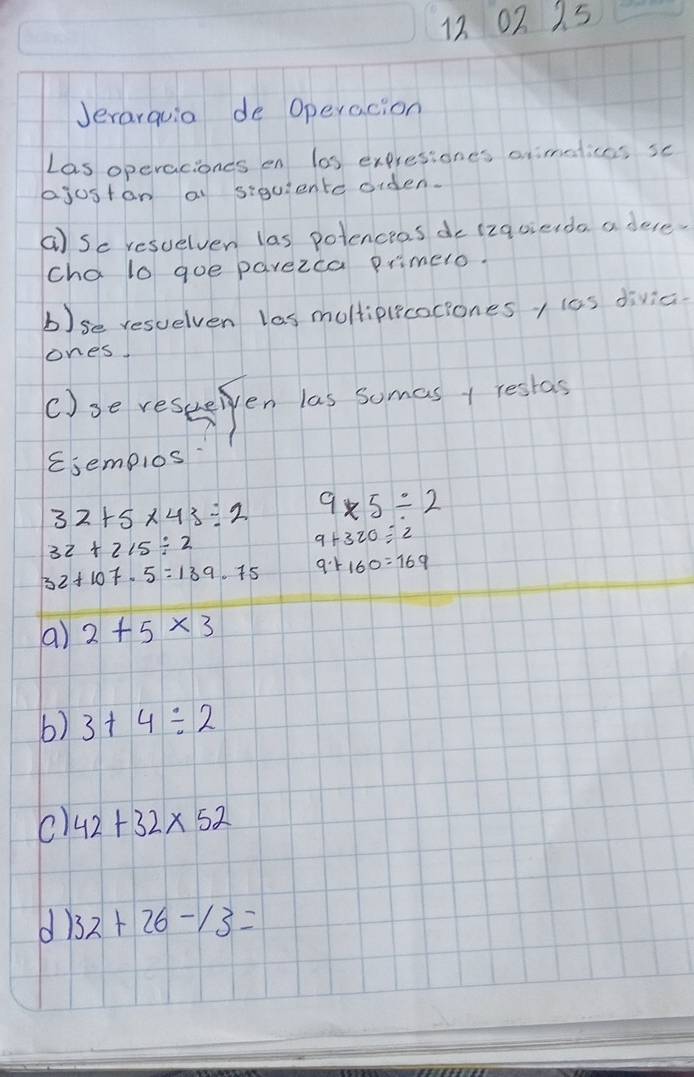 12 02 25
Jerarquia de Operacion
Las operaciones en las expresiones arimaticas se
ajustan al siguiente orden.
a) Se resuelven las potencias de izquierda a dere-
cha lo que parezca primero.
b) se resuelven las multiplicaciones y las divici-
ones.
c) se resuelven las sumas y restas
Ejemplos:
32+5×43÷2
9×5÷2
32+215÷2
9+320÷2
32+107.5=139.75
9+160=169
a) 2+5×3
b) 3+4÷2
c) 42+32×52
d) 32+26-13=